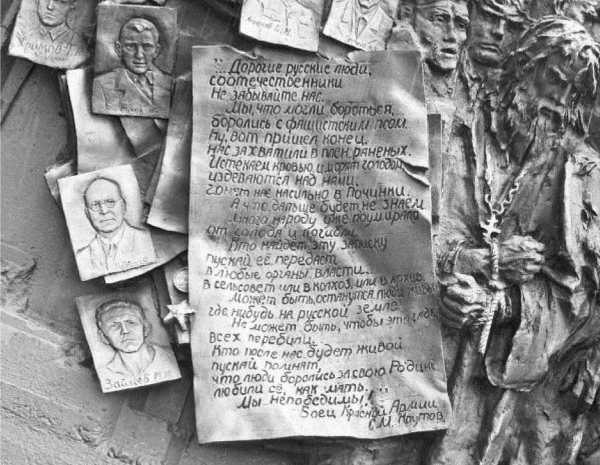 Зайцев
"Дорогие русские люди,
соотечественники
Не забывайте нас.
Мы, что могли бороться,
боролись с фашистским псом.
Ну, вот пришел конец.
Нас захватили в плен раненых.
Истекаем кровью и морят голодом
издеваются над нами,
гонят нас насильно в Починки.
А что дальше будет не знаем
Много народу уже поумирало
от голода и погибли
Кто найдет эту записку
пускай её передаст
в любые органы власти...
в сельсовет или в колхоз, или в архив.
Может быть, останутся люди живы
где нибудь на русской земле.
Не может быть, чтобы эти гады
всех перебили.
Кто после нас будет живой
пускай помнят,
что люди боролись за свою Родину
любили её, как мать.
Мы непобедимы!"
Боец Красной Армии
С.М.